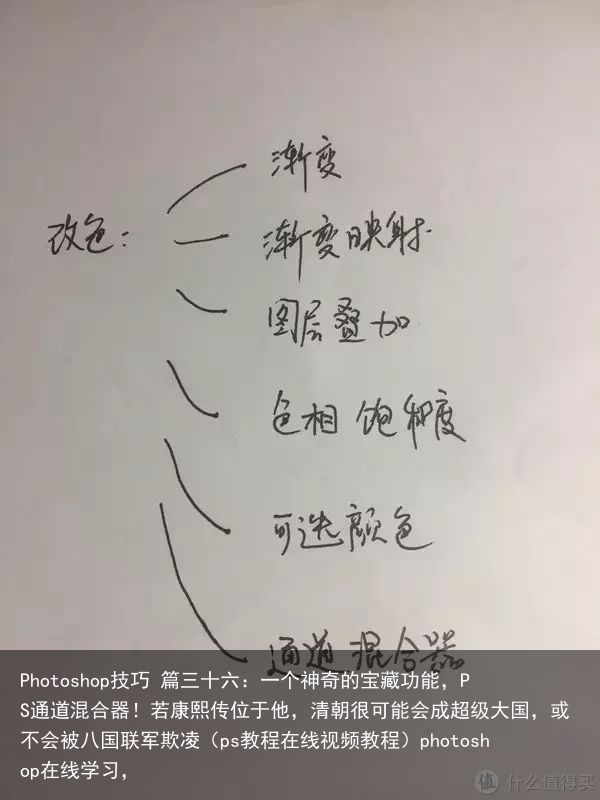 渐变
改色：
渐变映射
图层叠加
色相 饱和度
可选颜色
通道混合器
Photoshop技巧 篇三十六：一个神奇的宝藏功能，P
S通道混合器！若康熙传位于他，清朝很可能会成超级大国，或
不会被八国联军欺凌（ps教程在线视频教程）photosh
op在线学习，
值 什么值得买